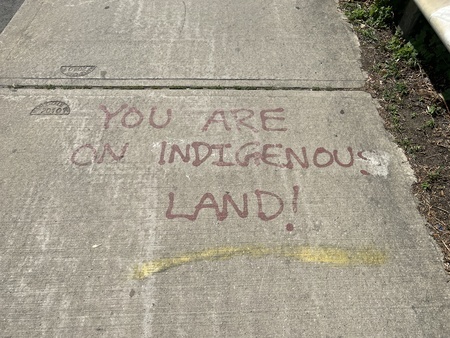 YOU ARE
ON INDIGENOUS
LAND!